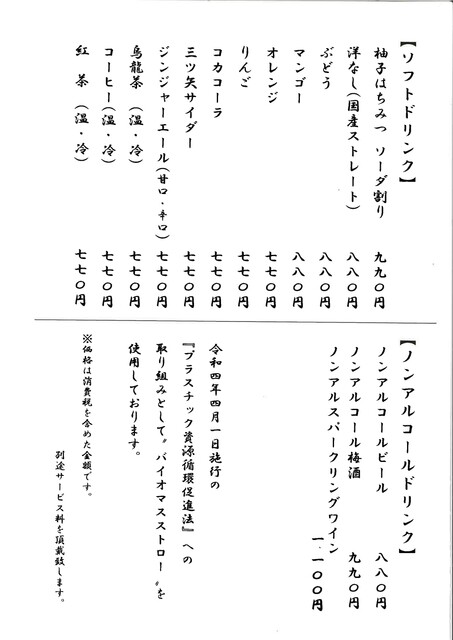 【ソフトドリンク】
柚子はちみつ ソーダ割り 九九〇円
洋なし(国産ストレート) 八八〇円
ぶどう 八八〇円
マンゴー 八八〇円
オレンジ 七七〇円
りんご 七七〇円
コカコーラ 七七〇円
三ツ矢サイダー 七七〇円
ジンジャーエール(甘口・辛口) 七七〇円
烏龍茶 (温・冷) 七七〇円
コーヒー(温・冷) 七七〇円
紅 茶 (温・冷) 七七〇円
【ノンアルコールドリンク】
ノンアルコールビール 八八〇円
ノンアルコール梅酒 九九〇円
ノンアルスパークリングワイン 一、一〇〇円
令和四年四月一日施行の
『プラスチック資源循環促進法』への
取り組みとして〝バイオマスストロー〟を
使用しております。
※価格は消費税を含めた金額です。
別途サービス料を頂戴致します。